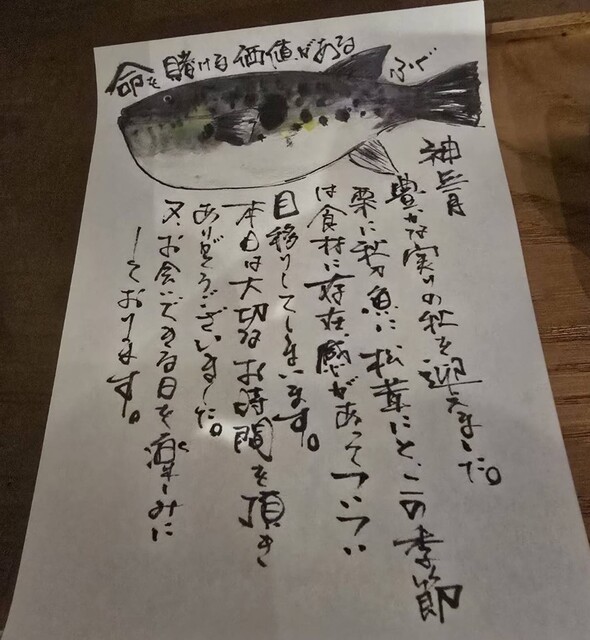 命を賭ける価値がある
ふぐ
神無月
豊かな実りの秋を迎えました。
栗に秋刀魚に松茸にと、この季節
は食材に存在感があってついつい
目移りしてしまいます。
本日は大切なお時間を頂き
ありがとうございました。
又、お会いできる日を楽しみに
しております。